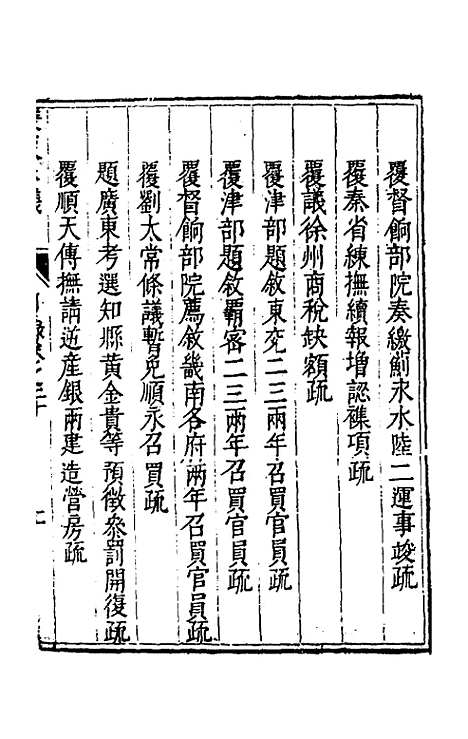 覆督餉部院奏繳薊永水陸二運事竣疏
覆秦省練撫續報增認襍項疏
覆議徐州商稅缺額疏
覆津部題敘東兖二三兩年召買官員疏
覆津部題敘霸密二三兩年召買官員疏
覆督餉部院薦敘畿南各府兩年召買官員疏
覆劉太常條議暫免順永召買疏
題廣東考選知縣黄金貴等預徵叅罰開復疏
覆順天傳撫請近產銀兩建造營房疏